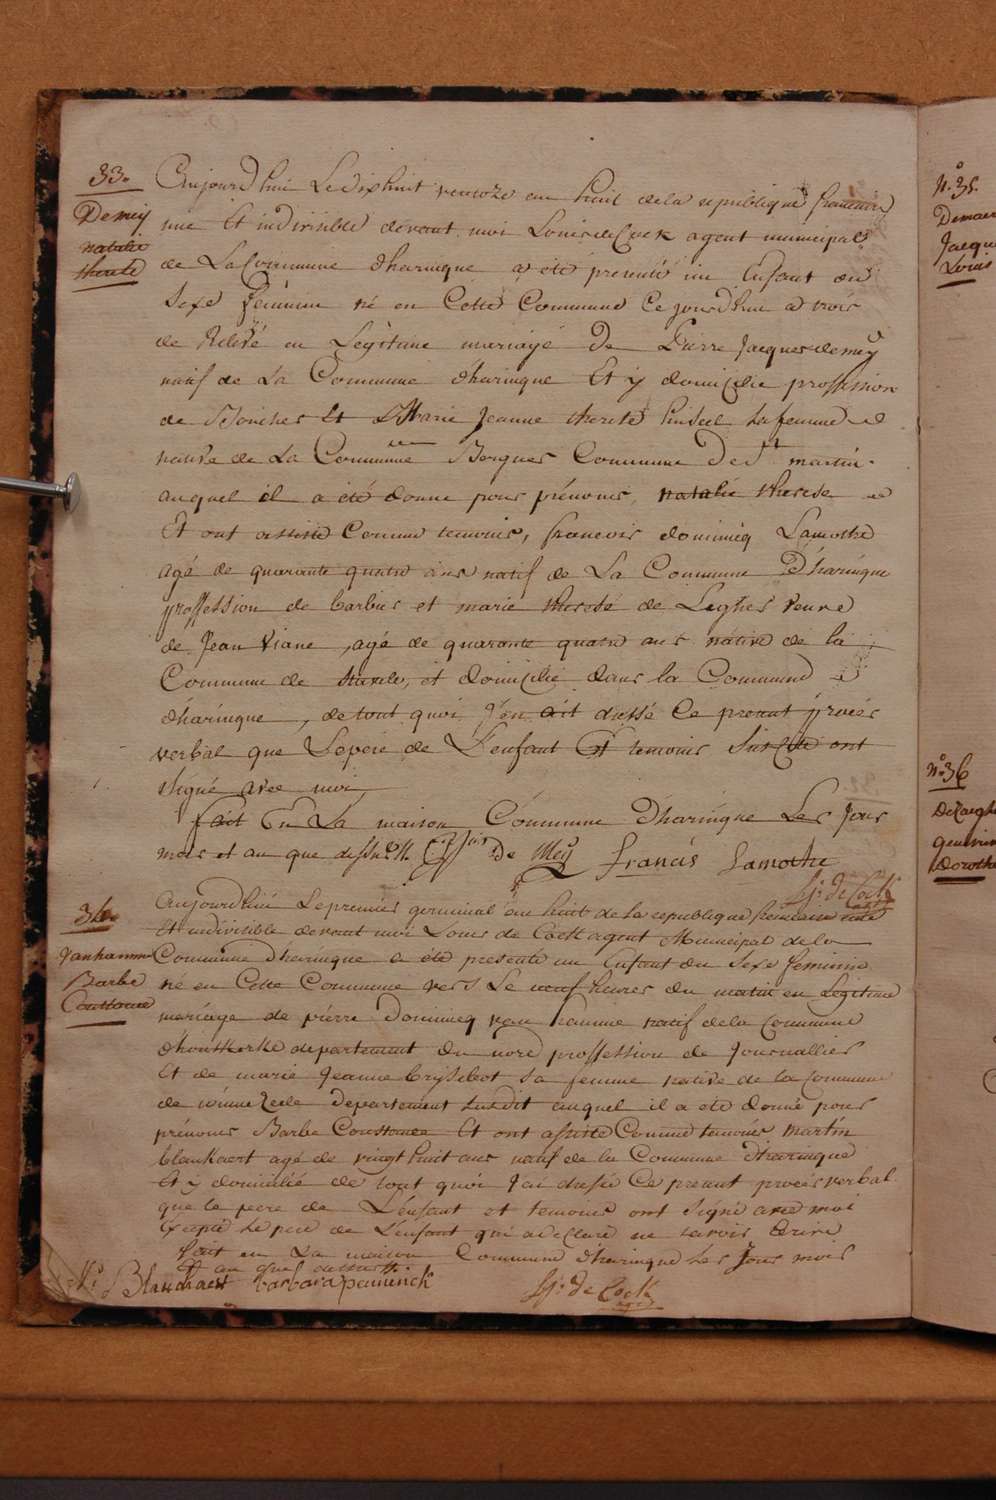 33.
Demeÿ
natalie
therese
Aujourd'hui Le dix huit ventoze an huit de la republique francaise
une Et indivisible devant moi Louis de Cock agent municipal
de La Commune dharingue a été presenté un Enfant du
Sexe féminin né en Cette Commune Ce jourd'hui a trois
de Relevé en Legitime mariage De Pierre Jacques demeÿ
natif de La Commune dharingue Et ÿ domicilie proffession
de Boucher Et Marie Jeanne therese sa femme
native de La Commune Bergues Commune De St martin
auquel il a été donne pour prénoms, natalie therese
Et ont assisté Comme temoins, francois dominicq Lamothe
agé de quarante quatre ans natif de La Commune D'haringue
proffession de barbier et marie therese de Leghes veuve
de Jean Viane, agé de quarante quatre ans native de la
Commune de Stavele, et domicilie dans la Commune
dharingue, de tout quoi J'en ait dressé Ce presant procés
verbal que Le pere de L'enfant Et temoins Sus cité ont
signé avec moi
fait En La maison Commune Dharingue Les Jour
mois et an que dessus. De Meÿ francis Lamothe
Lj: de Cock
agt
34.
Vanhamme
Barbe
Constance
Aujourd'hui Le premier germinal an huit de la republique francaise une
Et indivisible devant moi Louis de Cock agent Municipal de la
Commune Dharingue a été presenté un Enfant du Sexe feminin
né en Cette Commune vers Le neuf heures du matin en Legitime
mariage de pierre Dominicq van hamme natif de la Commune
dhontkerke departement du nord proffession de Journallier
Et de marie Jeanne brysebot sa femme native de la Commune
de departement Susdit auquel il a eté donné pour
prénoms Barbe Constance Et ont assisté Comme temoins Martin
blankaert agé de vingt huit ans natif de la Commune dharingue
Et ÿ domicilié de tout quoi J'ai dressé Ce presant procés verbal
que le pere de L'enfant et temoins ont signé avec moi
Excepté Le pere de L'enfant qui a declaré ne savoir Ecrire
fait en La maison Commune Dharingue Les Jour mois
et an que dessus.
Blanckaert barbara
Lj: de Cock
agt
N.o 35.
Jacqu
Louis
N.o 36